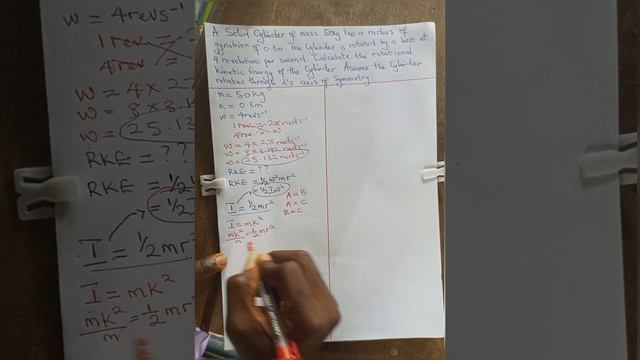 A Solid Cylinder of mass 50kg has a radius of
gyration of 0.8m. The Cylinder is rotated by a belt at
4 revolutions per second. Calculate the rotational
Kinetic Energy of the Cylinder. Assume the Cylinder
rotates through it's axis of Symmetry.
m = 50kg
K = 0.8m
W = 4revs⁻¹
1rev = 2π rads⁻¹
4rev = W
W = 4 x 2π rads⁻¹
W = 8 x 3.142 rads⁻¹
W = 25.132 rads⁻¹
RKE = ??
RKE = ½ω²mr²
= ½Iω²
I = ½mr²
A = B
A = C
B = C
I = mk²
mk²/m = ½mr²
W = 4revs⁻¹
1rev =
4rev =
W = 4 x 2π
W = 8 x 3.
W = 25.13
RKE = ??
RKE = ½
= ½
I = ½mr²
I = mk²
mk²/m = ½ mr